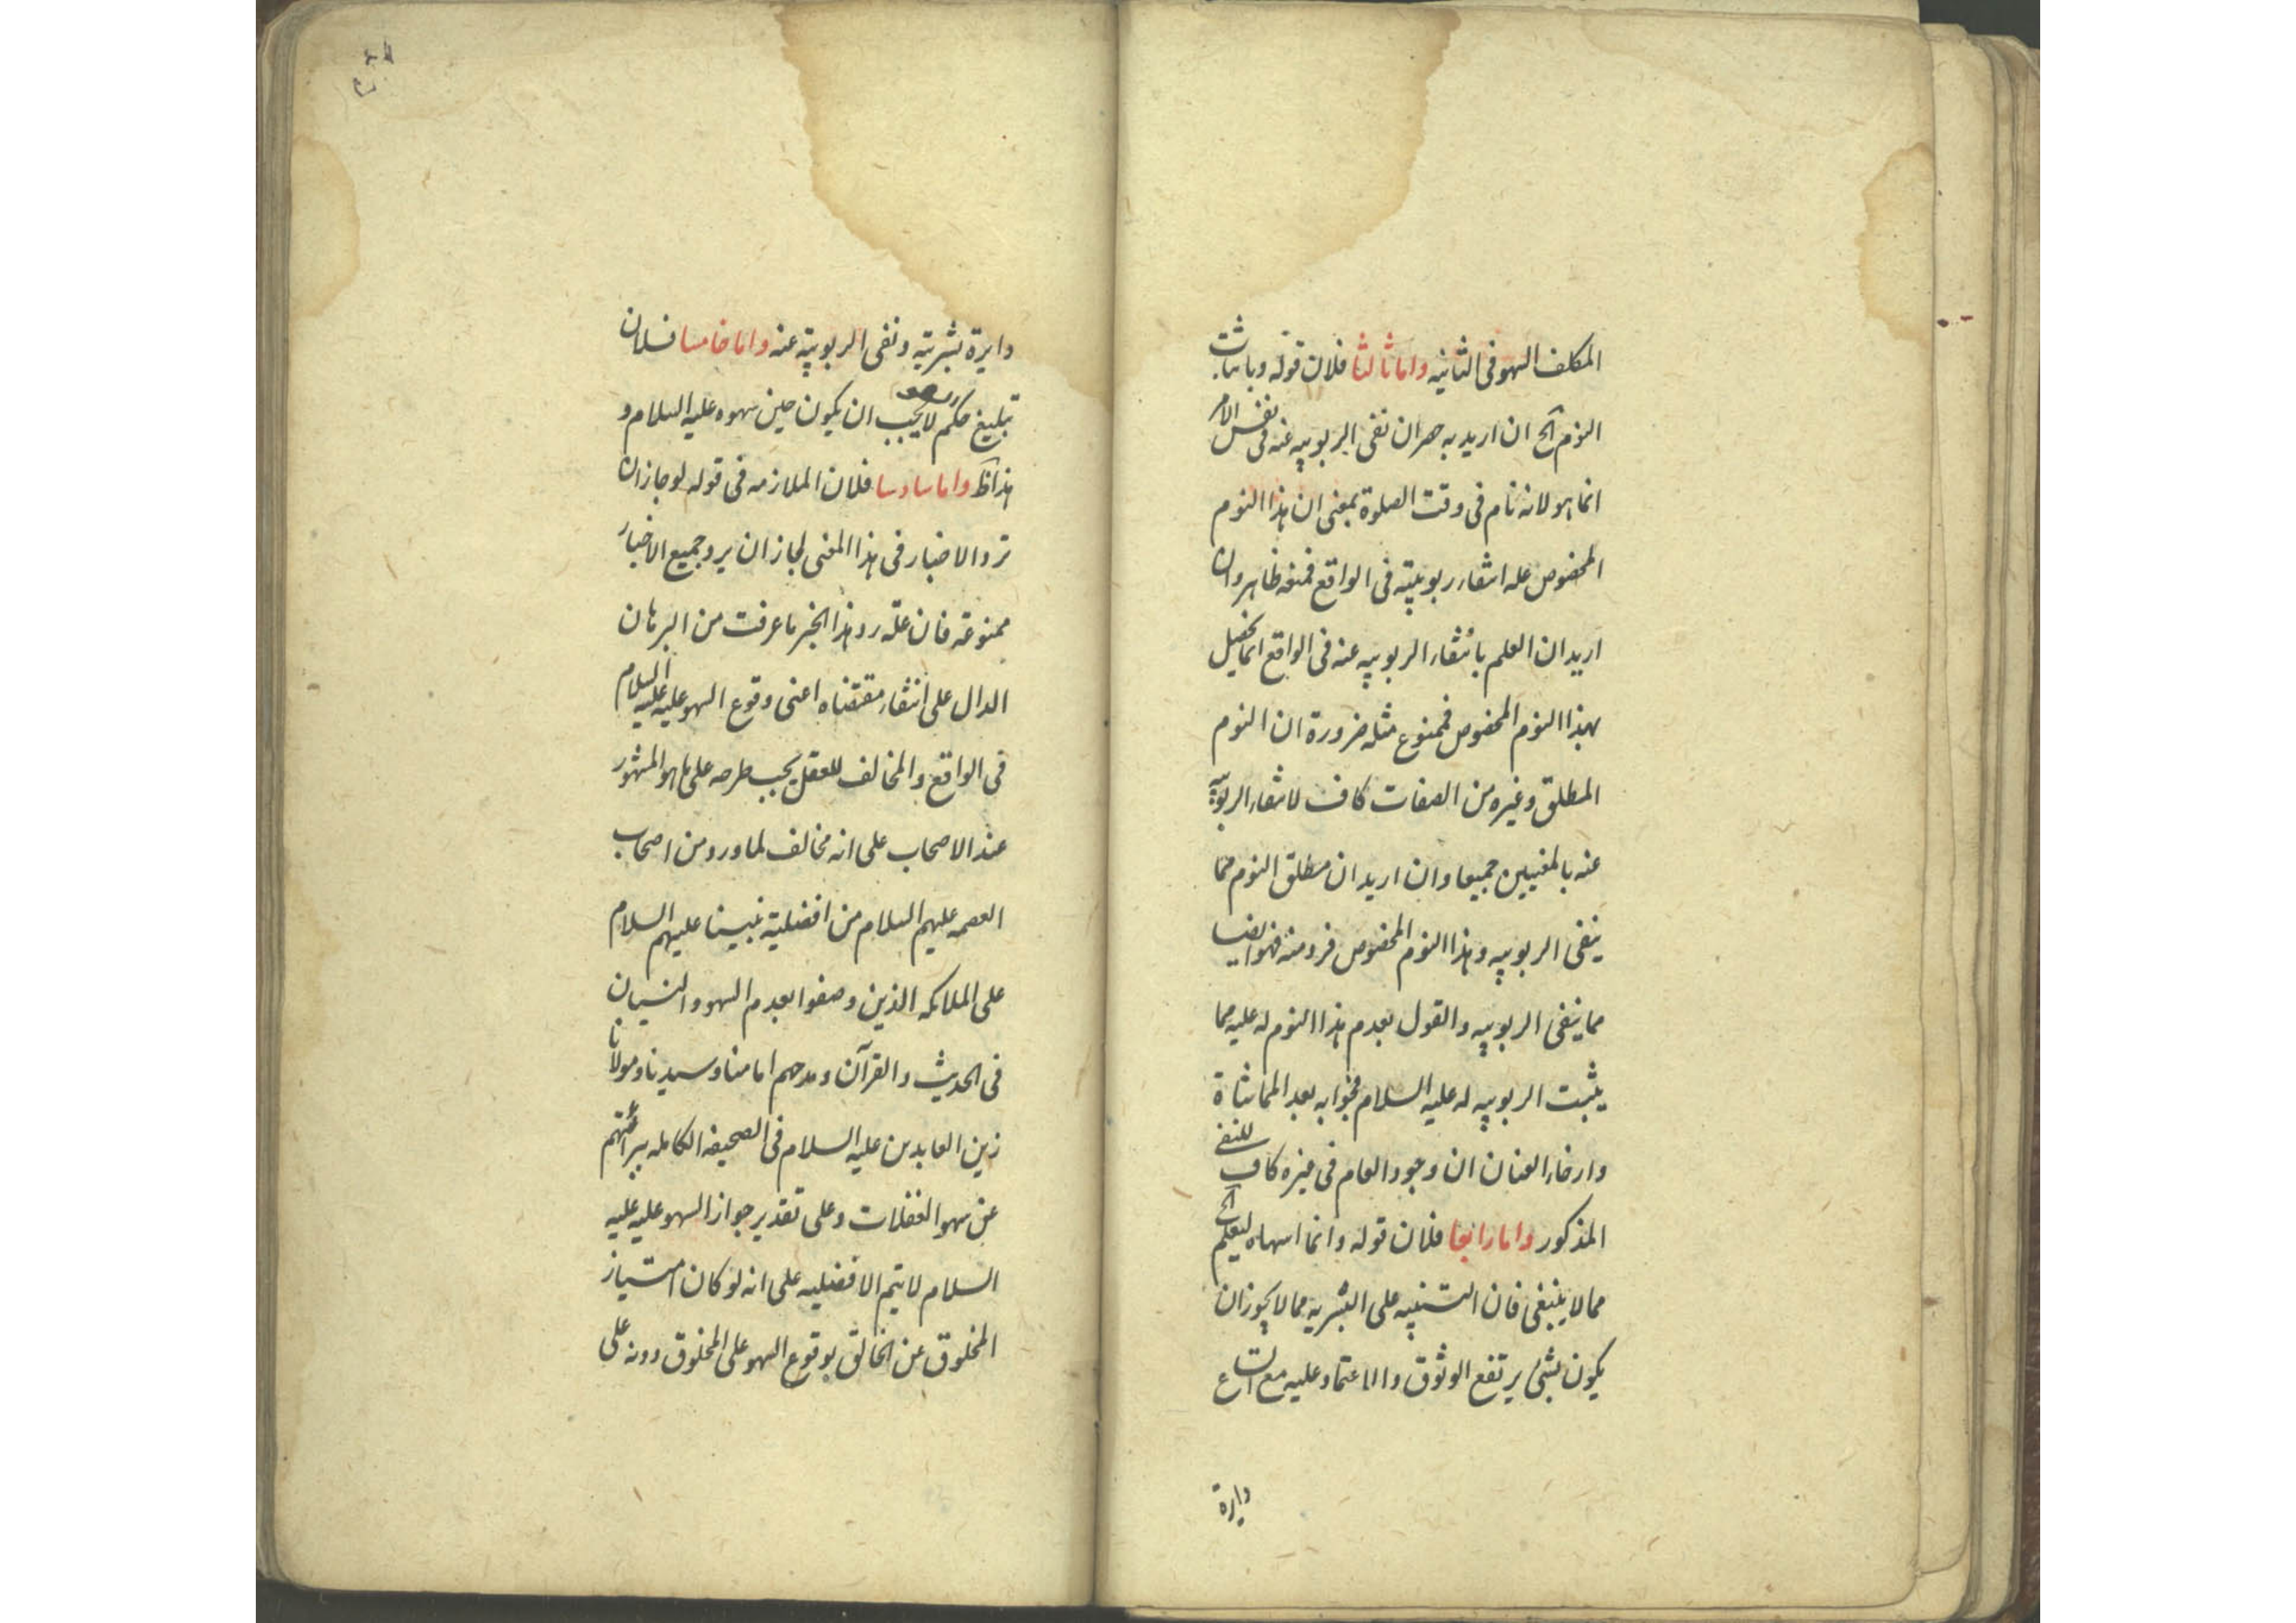 المكلف السهو فى الثانيه واما ثالثا فلان قوله وباثبات
النوم الخ ان اريد به حصر ان نفى الربوبيه عنه فى نفس الامر
انما هو لانه نام فى وقت الصلوة بمعنى ان هذا النوم
المخصوص علة انتفاء ربوبيته فى الواقع فمنعه ظاهر وان
اريد ان العلم بانتفاء الربوبيه عنه فى الواقع انما يحصل
بهذا النوم المخصوص فممنوع مثله ضرورة ان النوم
المطلق وغيره من الصفات كاف لانتفاء الربوبيه
عنه بالمعنيين جميعا وان اريد ان مطلق النوم مما
ينفى الربوبيه وهذا النوم المخصوص فرد منه فهو ايضا
مما ينفى الربوبيه والقول بعدم هذا النوم له عليه مما
يثبت الربوبيه له عليه السلام فجوابه بعد المماشاة
وارخاء العنان ان وجود العام فى غيره كاف للنفى
المذكور واما رابعا فلان قوله وانما اسهاه ليعلم الخ
مما لا ينبغى فان التنبيه على البشريه مما لا يجوز ان
يكون بشئ يرتفع الوثوق والاعتماد عليه مع اتساع
دايرة
دايرة بشريته ونفى الربوبية عنه واما خامسا فلان
تبليغ حكم السهو لا يجب ان يكون حين سهوه عليه السلام و
هذا ظ واما سادسا فلان الملازمه فى قوله لو جاز ان
ترد الاخبار فى هذا المعنى لجاز ان يرد جميع الاخبار
ممنوعة فان علة رد هذا الخبر ما عرفت من البرهان
الدال على انتفاء مقتضاه اعنى وقوع السهو عليه عليه السلام
فى الواقع والمخالف للعقل يجب طرحه على ما هو المشهور
عند الاصحاب على انه مخالف لما ورد من اصحاب
العصمه عليهم السلام من افضلية نبينا عليهم السلام
على الملائكه الذين وصفوا بعدم السهو والنسيان
فى الحديث والقرآن ومدحهم امامنا وسيدنا ومولانا
زين العابدين عليه السلام فى الصحيفه الكامله ببرائتهم
عن سهو الغفلات وعلى تقدير جواز السهو عليه عليه
السلام لا يتم الافضليه على انه لو كان امتياز
المخلوق عن الخالق بوقوع السهو على المخلوق دونه على